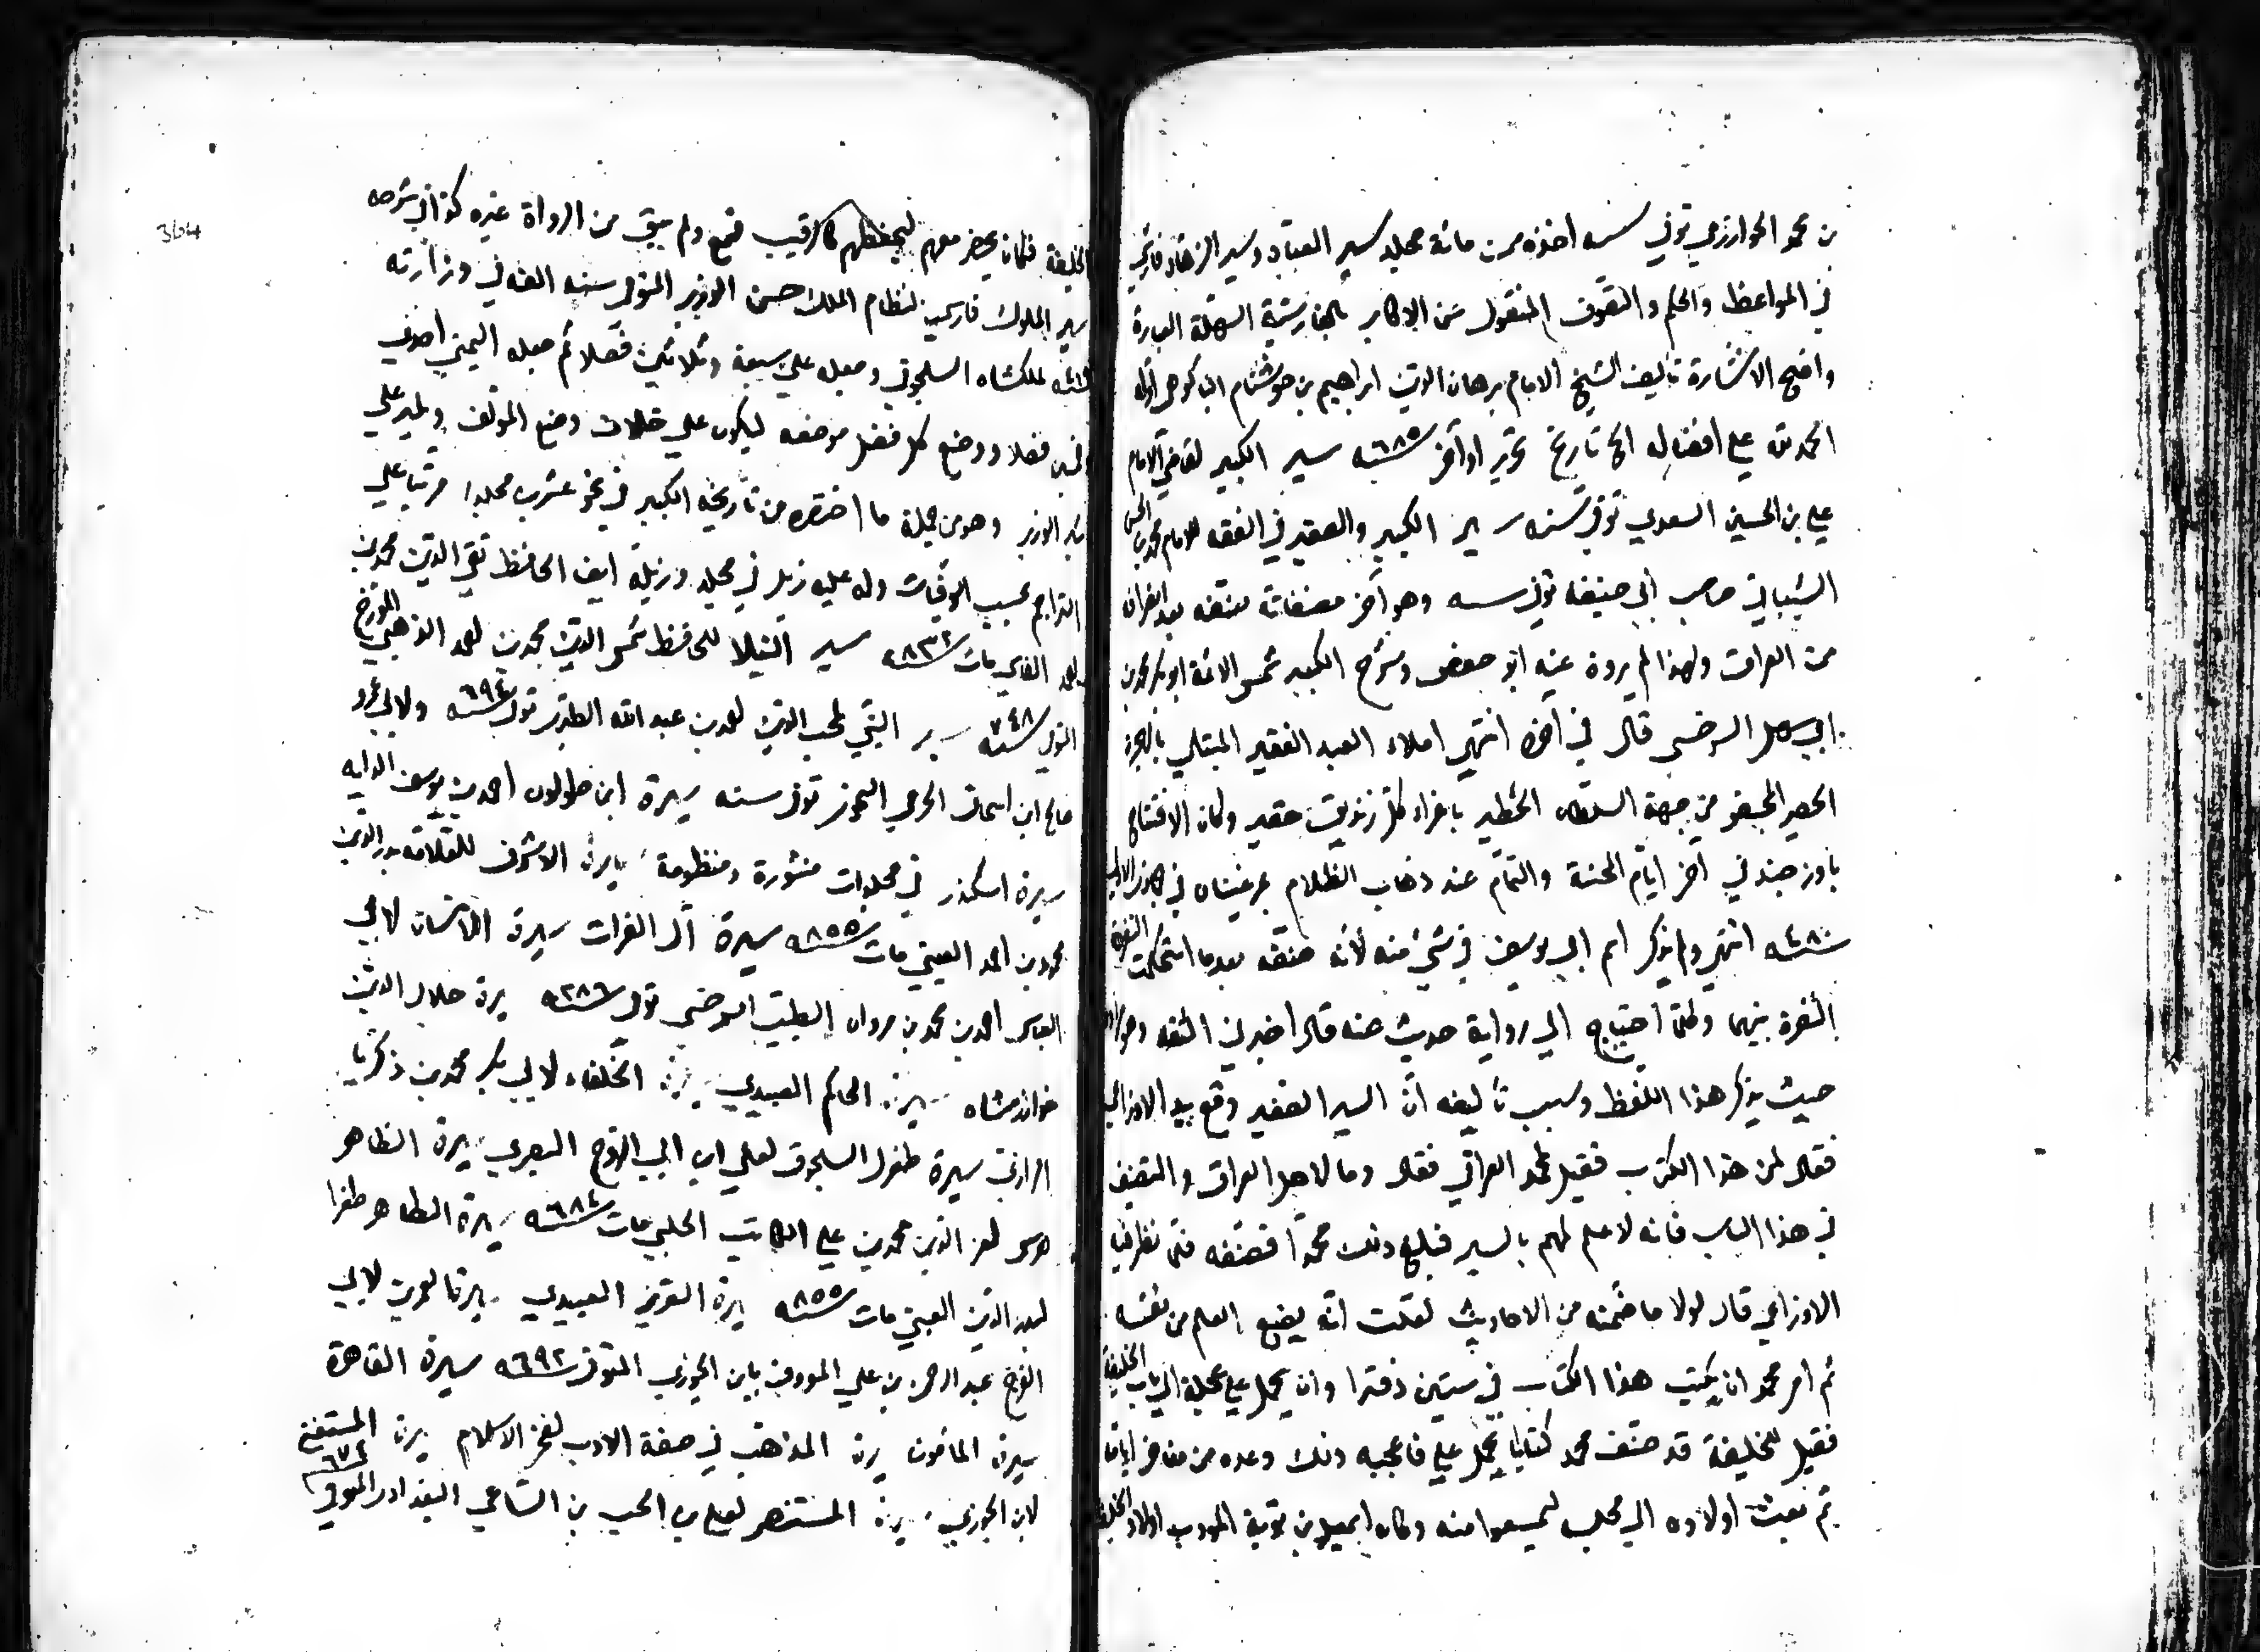 بن محمد الخوارزمي توفي سنه اخذه من مائة مجلد سير العباد وسير الزهاد فارسي
في المواعظ والحكم والتصوف المنقول من الاكابر بالفارسية السهلة العبارة
واضح الاشارة تأليف الشيخ الامام برهان الدين ابراهيم بن اوله
الحمد لله على افضاله الخ تاريخ تحرير اواخر سنه ٦٨٥ سير الكبير لقاضي الامام
علي بن الحسين السعدي توفي سنه سير الكبير والصغير في الفقه للامام محمد بن الحسن
الشيباني صاحب ابي حنيفه توفي سنه وهو آخر مصنفات صنفه بعد انصرافه
من العراق ولهذا لم يروه عنه ابو حفص وشرح الكبير شمس الائمة ابو بكر محمد بن
ابي سهل السرخسي قال في آخره انتهى املاء العبد الفقير المبتلي بالهجرة
الحصير المحبوس من جهة السلطان الخطير باغراء كل زنديق حقير وكان الافتتاح
باوزجند في آخر ايام المحنة والتمام عند ذهاب الظلام بمرغينان في جمادى الاولى
سنه ٤٨٠ انتهى ولم يذكر اسم ابي يوسف في شيء منه لانه صنفه بعدما استحكمت النفرة
النفرة بينهما وكلما احتاج الى رواية حديث عنه قال اخبرني الثقه وهو المراد
حيث يذكر هذا اللفظ وسبب تأليفه ان السير الصغير وقع بيد الاوزاعي
فقال لمن هذا الكتاب فقيل لمحمد العراقي فقال وما لاهل العراق والتصنيف
في هذا الباب فانه لا علم لهم بالسير فبلغ ذلك محمدا فصنفه فلما نظر فيه
الاوزاعي قال لولا ما ضمنه من الاحاديث لقلت انه يضع العلم من نفسه
ثم امر محمد ان يكتب هذا الكتاب في ستين دفترا وان يحمل على عجلة الى باب الخليفة
فقيل للخليفة قد صنف محمد كتابا يحمل على فاعجبه ذلك وعده من مفاخر ايامه
ثم بعث اولاده الى مجلس ليسمعوا منه وكان اسمعيل بن توبة المؤدب اولاد الخليفة
الخليفة فكان يحضر معهم ليحفظهم كالرقيب فسمع ولم يبق من الرواة غيره كذا في شرحه
سير الملوك فارسي لنظام الملك حسن الوزير المتوفى سنه الفه في وزارته
لملكشاه السلجوقي وجعله على سبعة وثلاثين فصلا ثم جعله اليمني احدى
وخمسين فصلا ووضع كل فصل موضعه ليكون على خلاف وضع المؤلف ولمير علي
الوزير وهو من جملة ما اختصره من تاريخه الكبير في نحو عشرين مجلدا مرتبا على
التراجم بحسب الوفيات وله عليه ذيل في مجلد وذيله ايضا الحافظ تقي الدين محمد بن
احمد الفاسي مات سنه ٨٣٢ سير النبلا للحافظ شمس الدين محمد بن احمد الذهبي المورخ
المتوفى سنه ٧٤٨ سير النبي لمحب الدين احمد بن عبد الله الطبري توفي سنه ٦٩٤ ولابي عمرو
صالح ابن اسحاق الجرمي النحوي توفي سنه سيرة ابن طولون احمد بن يوسف الدايه
سيرة اسكندر في مجلدات منثورة ومنظومة سيرة الاشرف للعلامة بدر الدين
محمود بن احمد العيني مات سنه ٨٥٥ سيرة آل الفرات سيرة الانسان لابي
العباس احمد بن محمد بن مروان الطبيب السرخسي توفي سنه ٢٨٦ سيرة جلال الدين
خوارزمشاه سيرة الحاكم العبيدي سيرة الخلفاء لابي بكر محمد بن زكريا
الرازي سيرة طغرل السلجوقي لعلي ابن ابي الفرج البصري سيرة الظاهر
بيبرس لعز الدين محمد بن علي الكاتب الحلبي مات سنه ٦٨٤ سيرة الظاهر ططر
لبدر الدين العيني مات سنه ٨٥٥ سيرة العزيز العبيدي سيرة العمرين لابي
الفرج عبد الرحمن بن علي المعروف بابن الجوزي المتوفى سنه ٦٩٢ سيرة القاهرة
سيرة المأمون سيرة المذاهب في صفة الادب لفخر الاسلام سيرة المستضيء
لابن الجوزي سيرة المستنصر لعلي بن انجب بن الساعي البغدادي المتوفى ٦٧٤
364